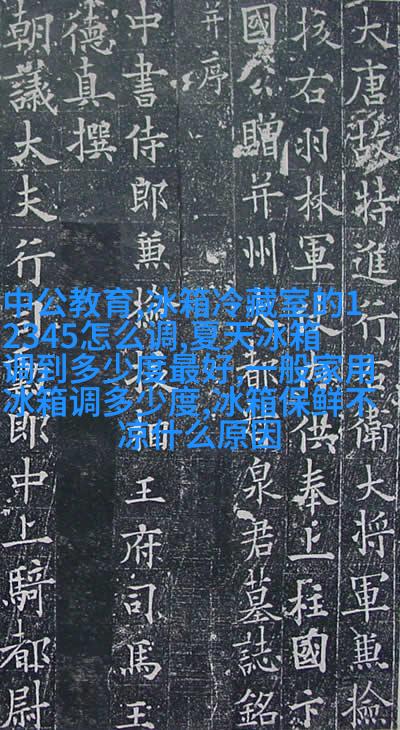 大唐故特進行右衛大將軍兼檢
挍右羽林軍供奉上柱國卞
國公贈并州都泉君墓誌銘
并序
中書侍郎兼檢相王府司馬王
德真撰
朝議大夫行司勳郎中上騎都尉
中公教育,冰箱冷藏室的1
2345怎么调,夏天冰箱
调到多少度最好,一般家用
冰箱调多少度,冰箱保鲜不
凉什么原因